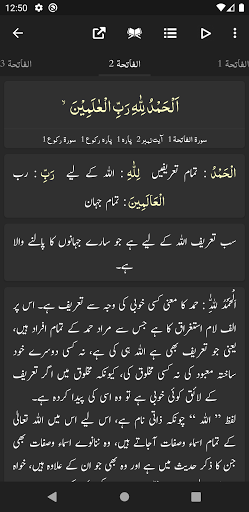 12:50
الفاتحة 1
الفاتحة 2
الفاتحة 3
اَلْحَمْدُ لِلّٰهِ رَبِّ الْعٰلَمِیْنَ ۙ
سورة الفاتحة 1 آیت نمبر 2 پارہ 1 پارہ رکوع 1 سورۃ رکوع 1
الْحَمْدُ : تمام تعریفیں لِلّٰهِ : اللہ کے لیے رَبِّ : رب
الْعَالَمِينَ : تمام جہان
سب تعریف اللہ کے لیے ہے جو سارے جہانوں کا پالنے والا
ہے۔
اَلْحَمْدُ لِلّٰهِ : حمد کا معنی کسی خوبی کی وجہ سے تعریف ہے۔ اس پر
الف لام استغراق کا ہے جس سے مراد حمد کے تمام افراد ہیں،
یعنی جو تعریف بھی ہے اللہ ہی کی ہے، نہ کسی دوسرے خود
ساختہ معبود کی نہ کسی مخلوق کی، کیونکہ مخلوق میں اگر تعریف
کے لائق کوئی خوبی ہے تو وہ اسی کی پیدا کردہ ہے۔
لفظ ” اللہ “ چونکہ ذاتی نام ہے، اس لیے اس میں اللہ تعالیٰ
کے تمام اسماء وصفات آجاتے ہیں، وہ ننانوے اسماء وصفات بھی
جن کا ذکر حدیث میں ہے اور وہ بھی جو ان کے علاوہ ہیں، خواہ